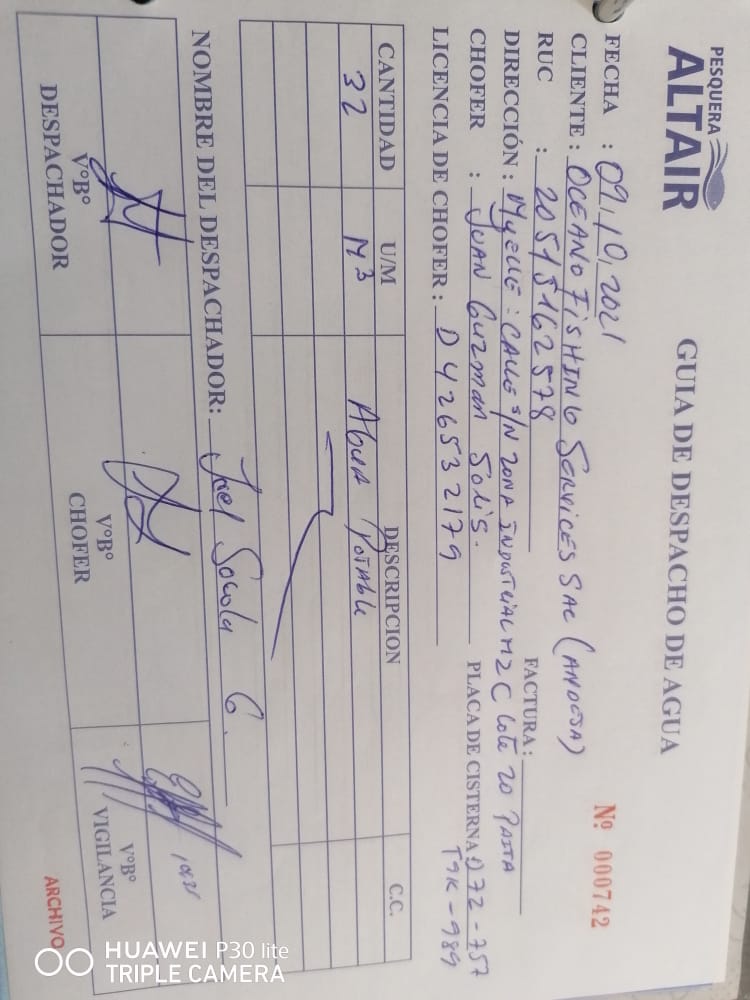 PESQUERA
ALTAIR
GUIA DE DESPACHO DE AGUA
Nº 000742
FECHA : 09.10.2021
CLIENTE : OCEANO FISHING SERVICES SAC (ANDESA)
RUC : 20515162578
FACTURA:
DIRECCIÓN : Myelle : CALLE S/N ZONA INDUSTRIAL MZ C lote 20 PAITA
CHOFER : JUAN Guzman Solis.
PLACA DE CISTERNA: D72-757
T9K-989
LICENCIA DE CHOFER : D426532179
CANTIDAD U/M DESCRIPCION C.C.
32 M3 Agua Potable
NOMBRE DEL DESPACHADOR: Joel Socola G.
VºBº DESPACHADOR
VºBº CHOFER
VºBº VIGILANCIA
ARCHIVO
HUAWEI P30 lite
TRIPLE CAMERA